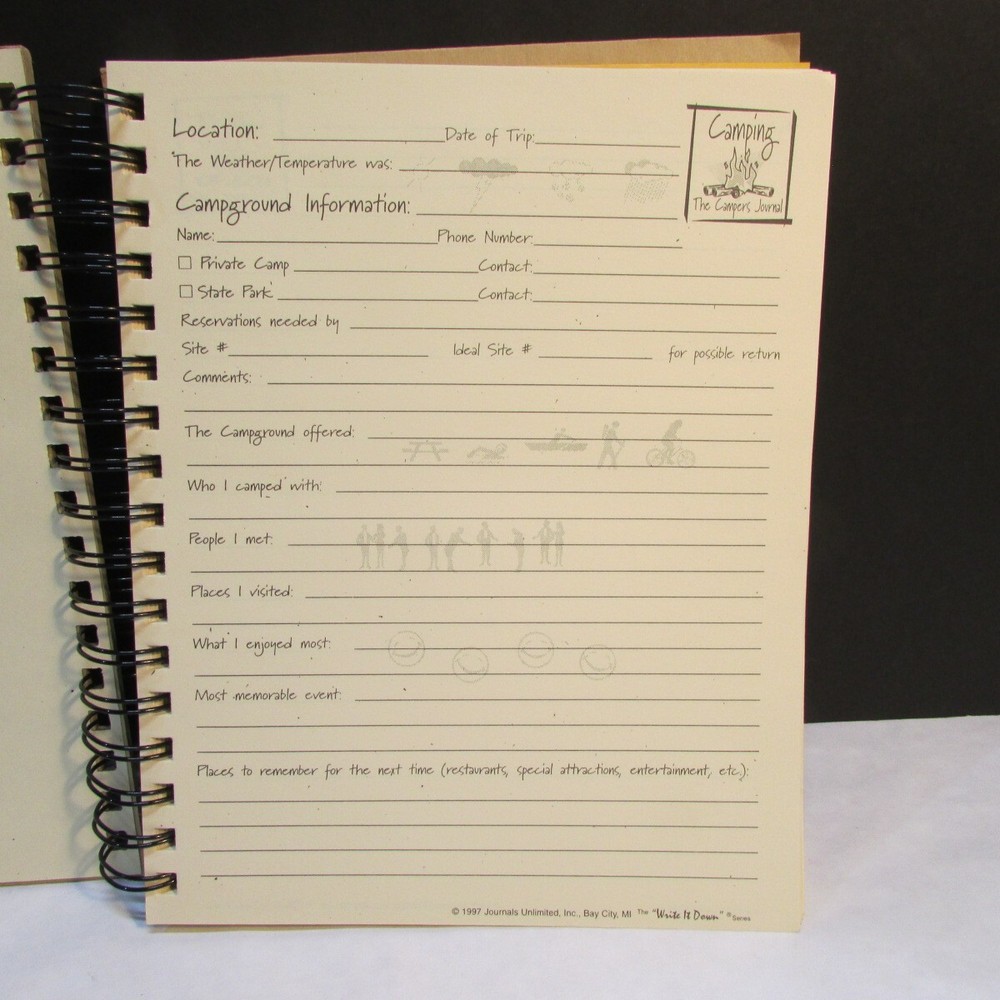 Location: Date of Trip:
Camping
The Weather/Temperature was:
The Campers Journal
Campground Information:
Name: Phone Number:
Private Camp Contact:
State Park Contact:
Reservations needed by
Site # Ideal Site # for possible return
Comments:
The Campground offered:
Who I camped with:
People I met:
Places I visited:
What I enjoyed most:
Most memorable event:
Places to remember for the next time (restaurants, special attractions, entertainment, etc.):
© 1997 Journals Unlimited, Inc., Bay City, MI The "Write It Down" ® Series